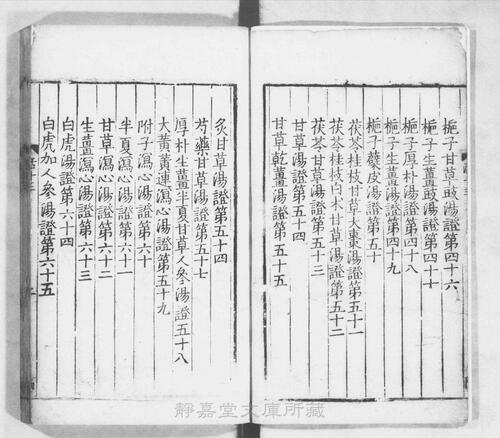 梔子甘草豉湯證第四十六
梔子生薑豉湯證第四十七
梔子厚朴湯證第四十八
梔子生薑湯證第四十九
梔子蘗皮湯證第五十
茯苓桂枝甘草大棗湯證第五十一
茯苓桂枝白木甘草湯證第五十二
茯苓甘草湯證第五十三
甘草湯證第五十四
甘草乾薑湯證第五十五
炙甘草湯證第五十四
芍藥甘草湯證第五十七
厚朴生薑半夏甘草人參湯證五十八
大黃黃連瀉心湯證第五十九
附子瀉心湯證第六十
半夏瀉心湯證第六十一
甘草瀉心湯證第六十二
生薑瀉心湯證第六十三
白虎湯證第六十四
白虎加人參湯證第六十五
靜嘉堂文庫所藏